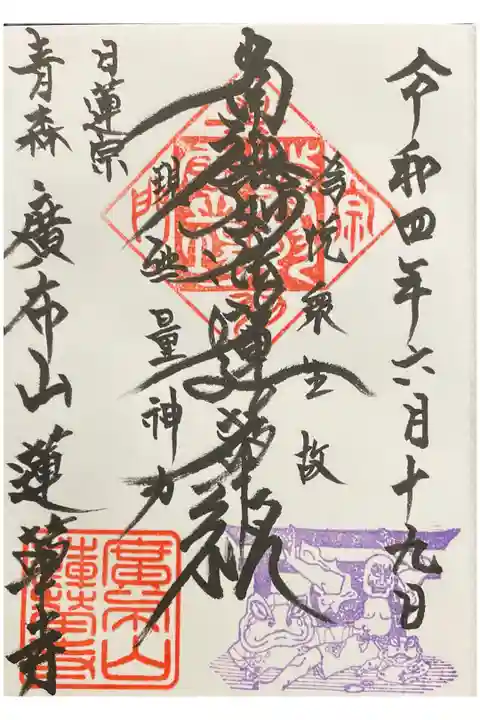 令和四年六月十九日
為悦衆生故
南無妙法蓮華経
現無量神力
日蓮宗
青森 廣布山 蓮華寺
宗
門
廣布山
蓮華寺